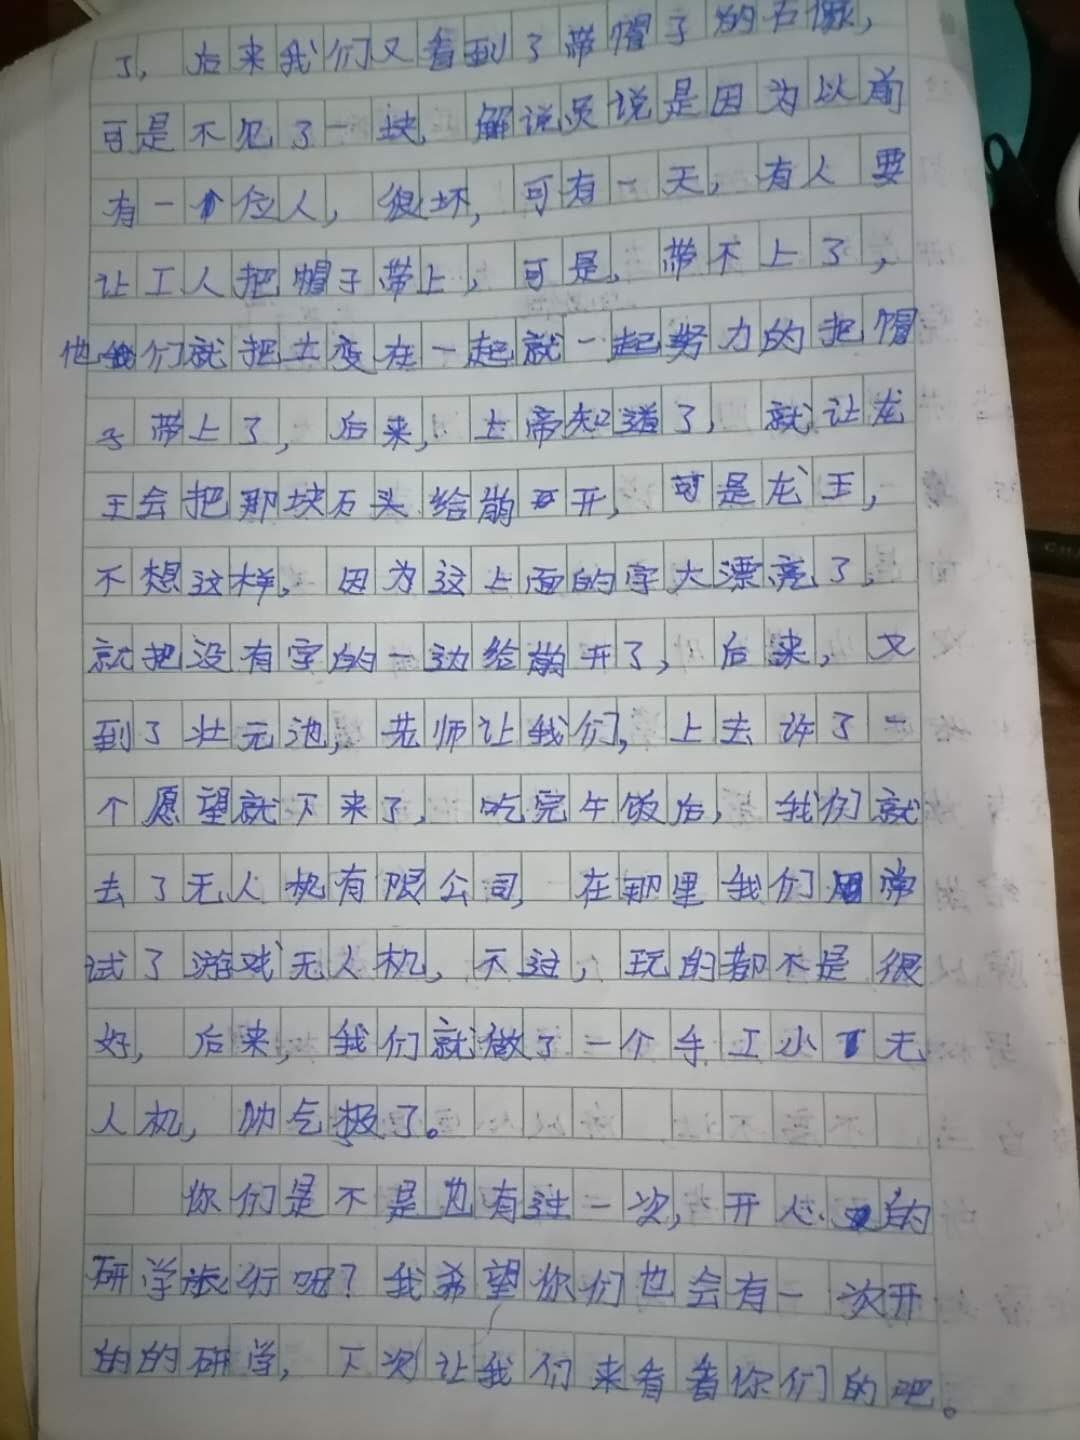 了，后来我们又看到了带帽子的石像，
可是不见了一块，解说员说是因为以前
有一个位人，很坏，可有一天，有人要
让工人把帽子带上，可是，带不上了，
他们就把土变在一起就一起努力的把帽
子带上了，后来，上帝知道了，就让龙
王会把那块石头给崩开，可是龙王，
不想这样，因为这上面的字大漂亮了，
就把没有字的一边给崩开了，后来，又
到了壮元池，老师让我们，上去许了一
个愿望就下来了，吃完午饭后，我们就
去了无人机有限公司，在那里我们常
试了游戏无人机，不过，玩的都不是很
好，后来，我们就做了一个手工小无
人机，帅气极了。
你们是不是也有过一次，开心的
研学旅行呢？我希望你们也会有一次开
的的研学，下次让我们来看看你们的吧。